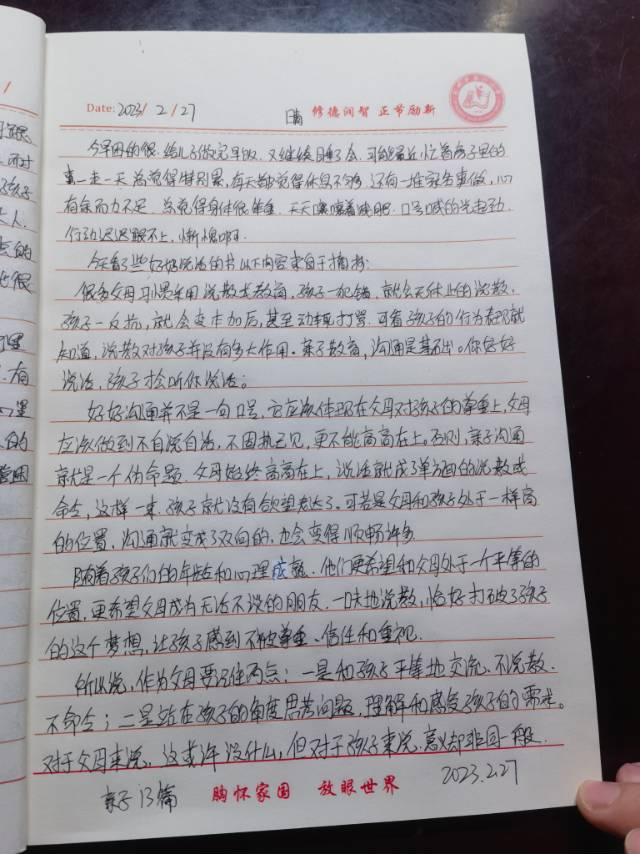 Date: 2023/2/27 晴 修德润智 正节励新
今早困的很. 给儿子做完早饭. 又继续睡了会. 可能最近忙着房子里的
事一走一天总觉得特别累, 每天都觉得休息不够. 还有一堆家务事做, 心
有余而力不足. 总觉得身体很笨重. 天天嚷嚷着减肥. 口号喊的先起劲.
行动迟迟跟不上, 惭愧啊.
今天看了些好好说话的书以下内容来自于摘抄:
很多父母习惯采用说教式教育, 孩子一犯错, 就会无休止的说教,
孩子一反抗, 就会变本加厉, 甚至动辄打骂. 可看孩子的行为表现就
知道, 说教对孩子并没有多大作用. 亲子教育, 沟通是基础。你好好
说话, 孩子才会听你说话。
好好沟通并不是一句口号, 它应该体现在父母对孩子的尊重上, 父母
应该做到不自说自话, 不固执己见, 更不能高高在上。否则, 亲子沟通
就是一个伪命题. 父母始终高高在上, 说话就成了单方面的说教或
命令, 这样一来, 孩子就没有欲望表达了, 可若是父母和孩子处于一样高
的位置, 沟通就变成了双向的, 也会变得顺畅许多
随着孩子们的年龄和心理成熟, 他们更希望和父母处于一个平等的
位置, 更希望父母成为无话不谈的朋友. 一味地说教, 恰好打破了孩子
的这个梦想, 让孩子感到不被尊重、信任和重视.
所以说, 作为父母要记住两点: 一是和孩子平等地交流, 不说教.
不命令; 二是站在孩子的角度思考问题, 理解和感受孩子的需求。
对于父母来说, 这或许没什么, 但对于孩子来说, 意义却非同一般.
亲子13篇 胸怀家国 放眼世界 2023.2.27